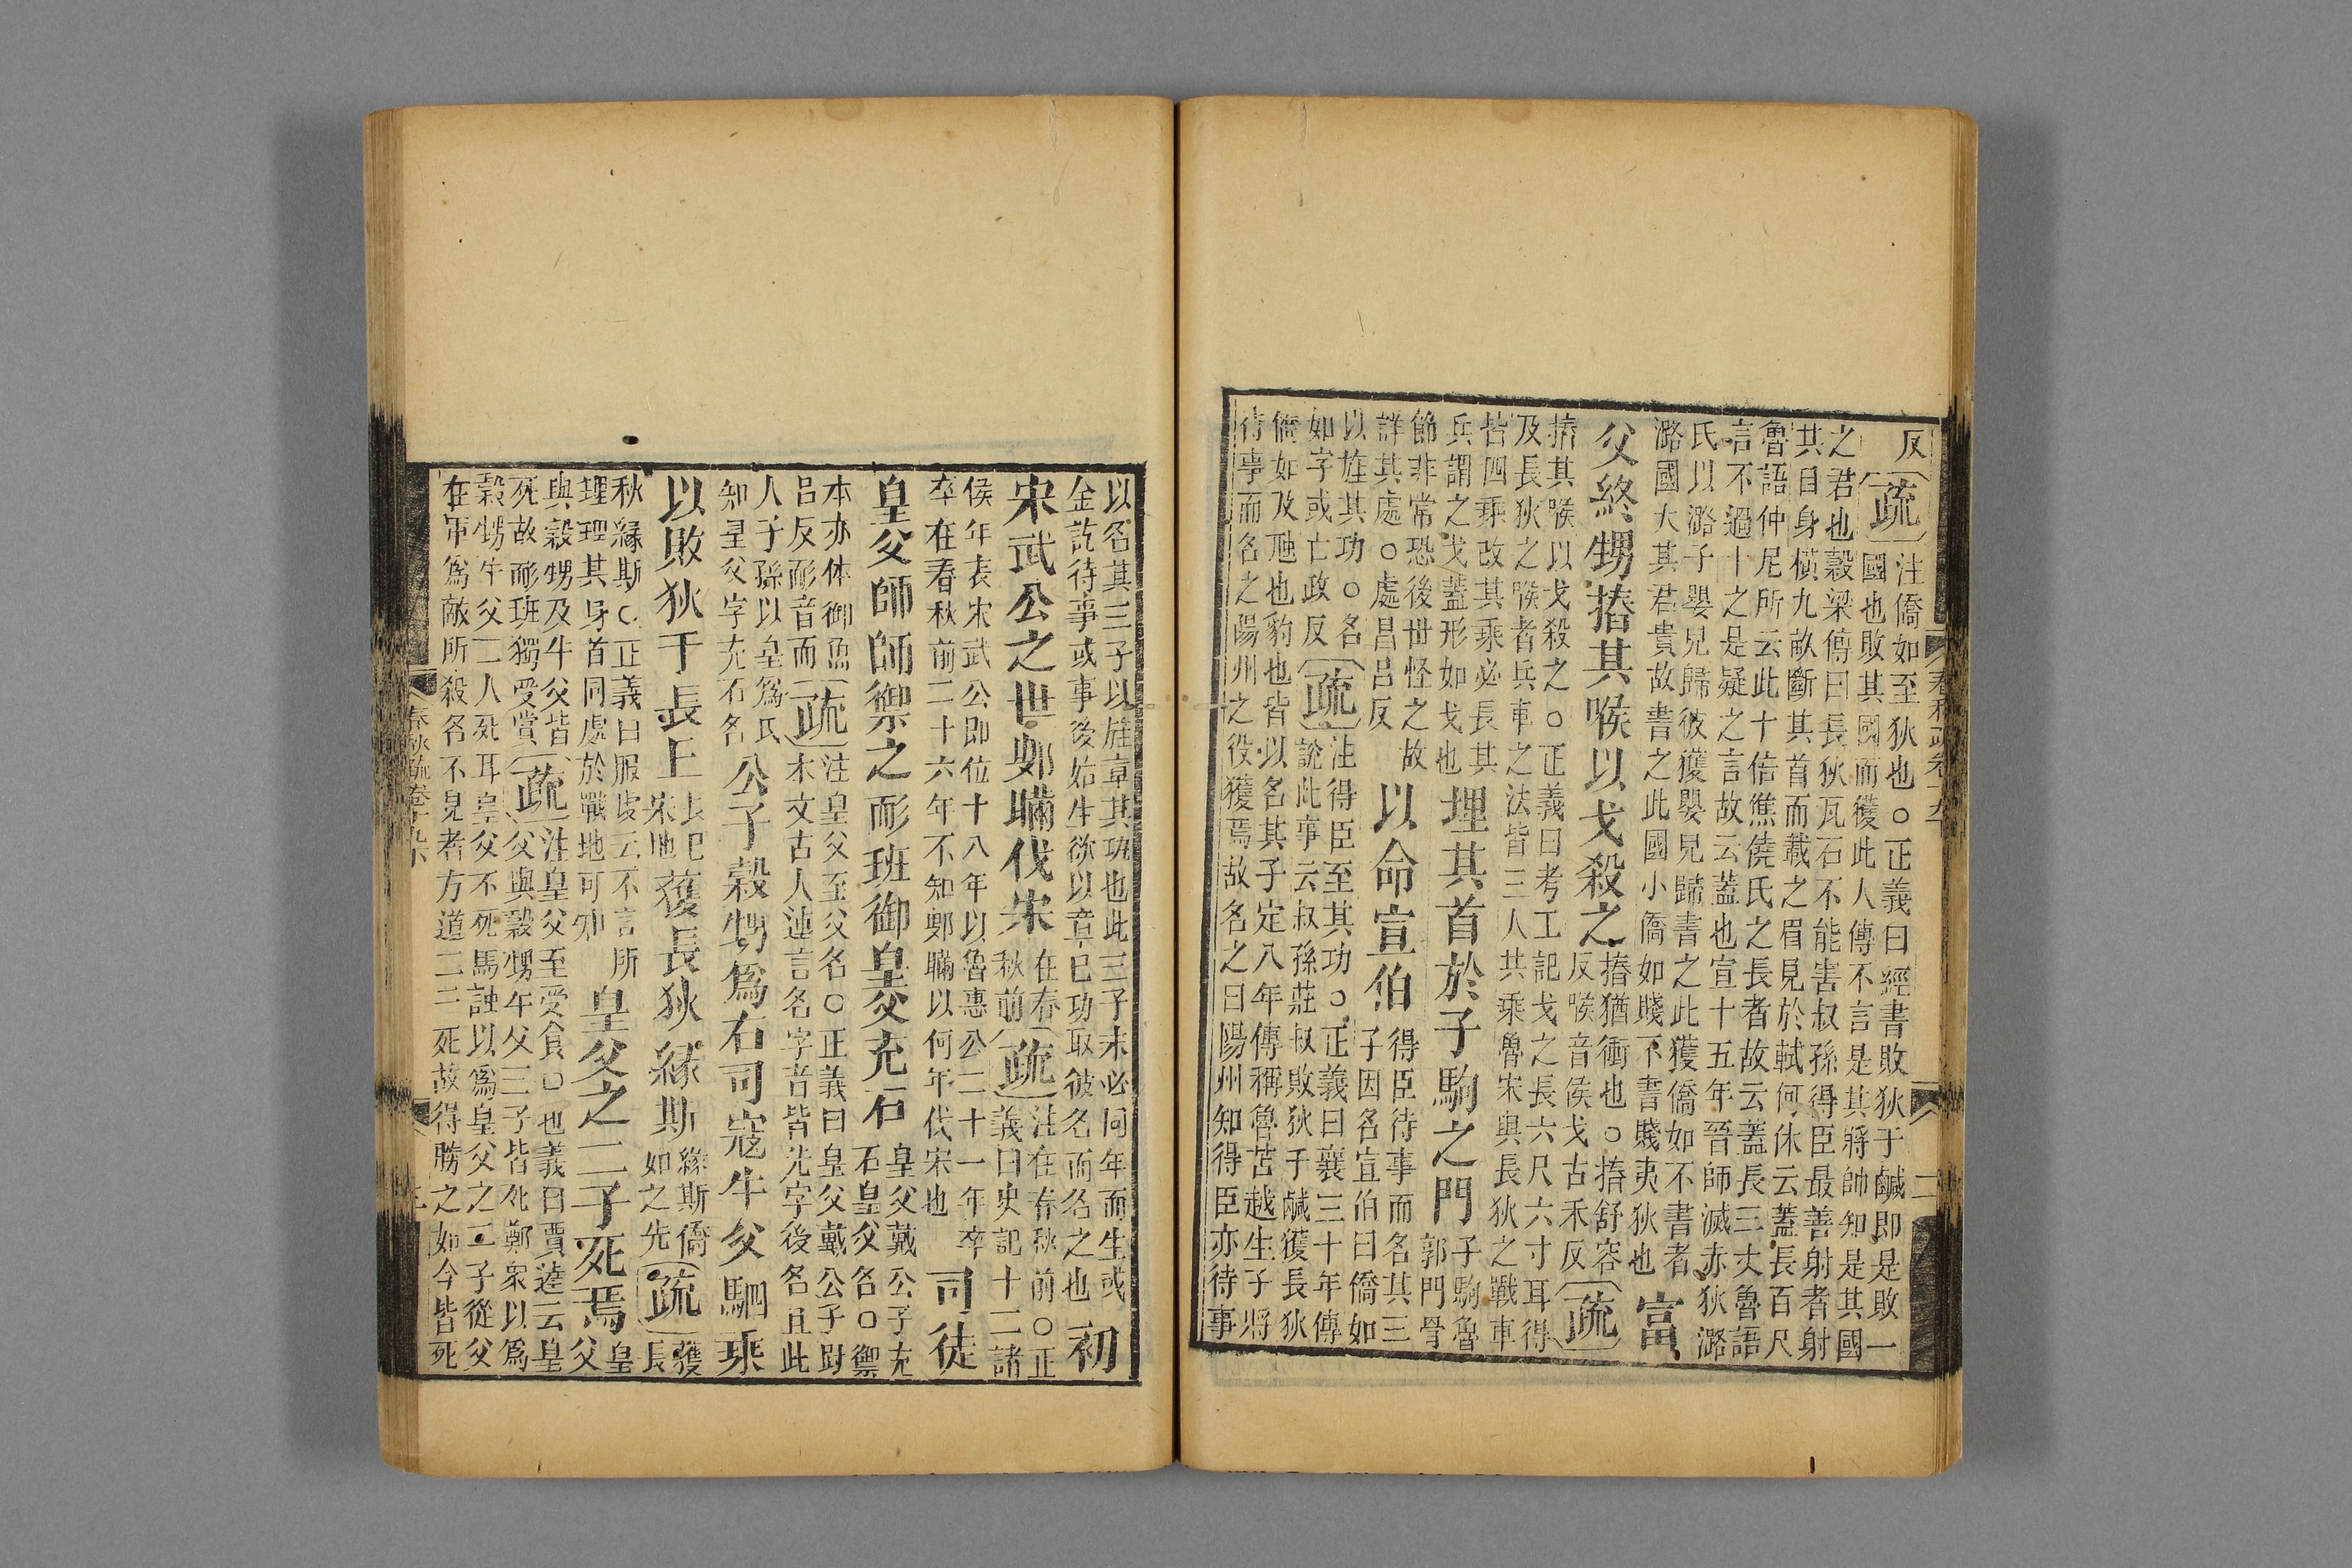 反〔疏〕注僑如至狄也○正義曰經書敗狄于鹹即是敗一
國也敗其國而獲此人傳不言是其將帥知是其國
之君也穀梁傳曰長狄瓦石不能害叔孫得臣最善射者射
其目身橫九畝斷其首而載之眉見於軾何休云蓋長百尺
魯語仲尼所云此十倍僬僥氏之長者故云蓋長三丈魯語
言不過十之是疑之言故云蓋也宣十五年晉師滅赤狄潞
氏以潞子嬰兒歸彼獲嬰兒歸書之此獲僑如不書者
潞國大其君貴故書之此國小僑如賤不書賤夷狄也
富
父終甥摏其喉以戈殺之
摏猶衝也○摏舒容
反喉音侯戈古禾反
〔疏〕
摏其喉以戈殺之○正義曰考工記戈之長六尺六寸耳得
及長狄之喉者兵車之法皆三人共乘魯宋與長狄之戰車
皆四乘改其乘必長其
兵謂之戈蓋形如戈也
埋其首於子駒之門
子駒魯
郭門骨
節非常恐後世怪之故
詳其處○處昌呂反
以命宣伯
得臣待事而名其三
子因名宣伯曰僑如
以旌其功○名
如字或亡政反
〔疏〕
注得臣至其功○正義曰襄三十年傳
說此事云叔孫莊叔敗狄于鹹獲長狄
僑如及虺也豹也皆以名其子定八年傳稱魯苫越生子將
待事而名之陽州之役獲焉故名之曰陽州知得臣亦待事
以名其三子以旌章其功也此三子未必同年而生或
金訖待事或事後始生欲以章已功取彼名而名之也
初
宋武公之世鄋瞞伐宋
在春
秋前
〔疏〕
注在春秋前○正
義曰史記十二諸
侯年表宋武公即位十八年以魯惠公二十一年卒
卒在春秋前二十六年不知鄋瞞以何年代宋也
司徒
皇父帥師禦之耏班御皇父充石
皇父戴公子充
石皇父名○禦
本亦作御魚
呂反耏音而
〔疏〕
注皇父至父名○正義曰皇父戴公子對
本文古人連言名字者皆先字後名且此
人子孫以皇為氏
知皇父字充石名
公子穀甥爲右司寇牛父駟乘
以敗狄于長丘
長丘
宋地
獲長狄緣斯
緣斯僑
如之先
〔疏〕
獲
長
秋緣斯○正義曰服虔云不言所
埋埋其身首同處於戰地可知
皇父之二子死焉
皇
父
與穀甥及牛父皆
死故耏班獨受賞
〔疏〕
注皇父至受食○也義曰賈逵云皇
父與穀甥牛父三子皆死鄭衆以爲
穀甥牛父二人死耳皇父不死馬融以爲皇父之二子從父
在軍爲敵所殺名不見者方道二三死故得勝之如今皆死
春秋疏卷十九
二